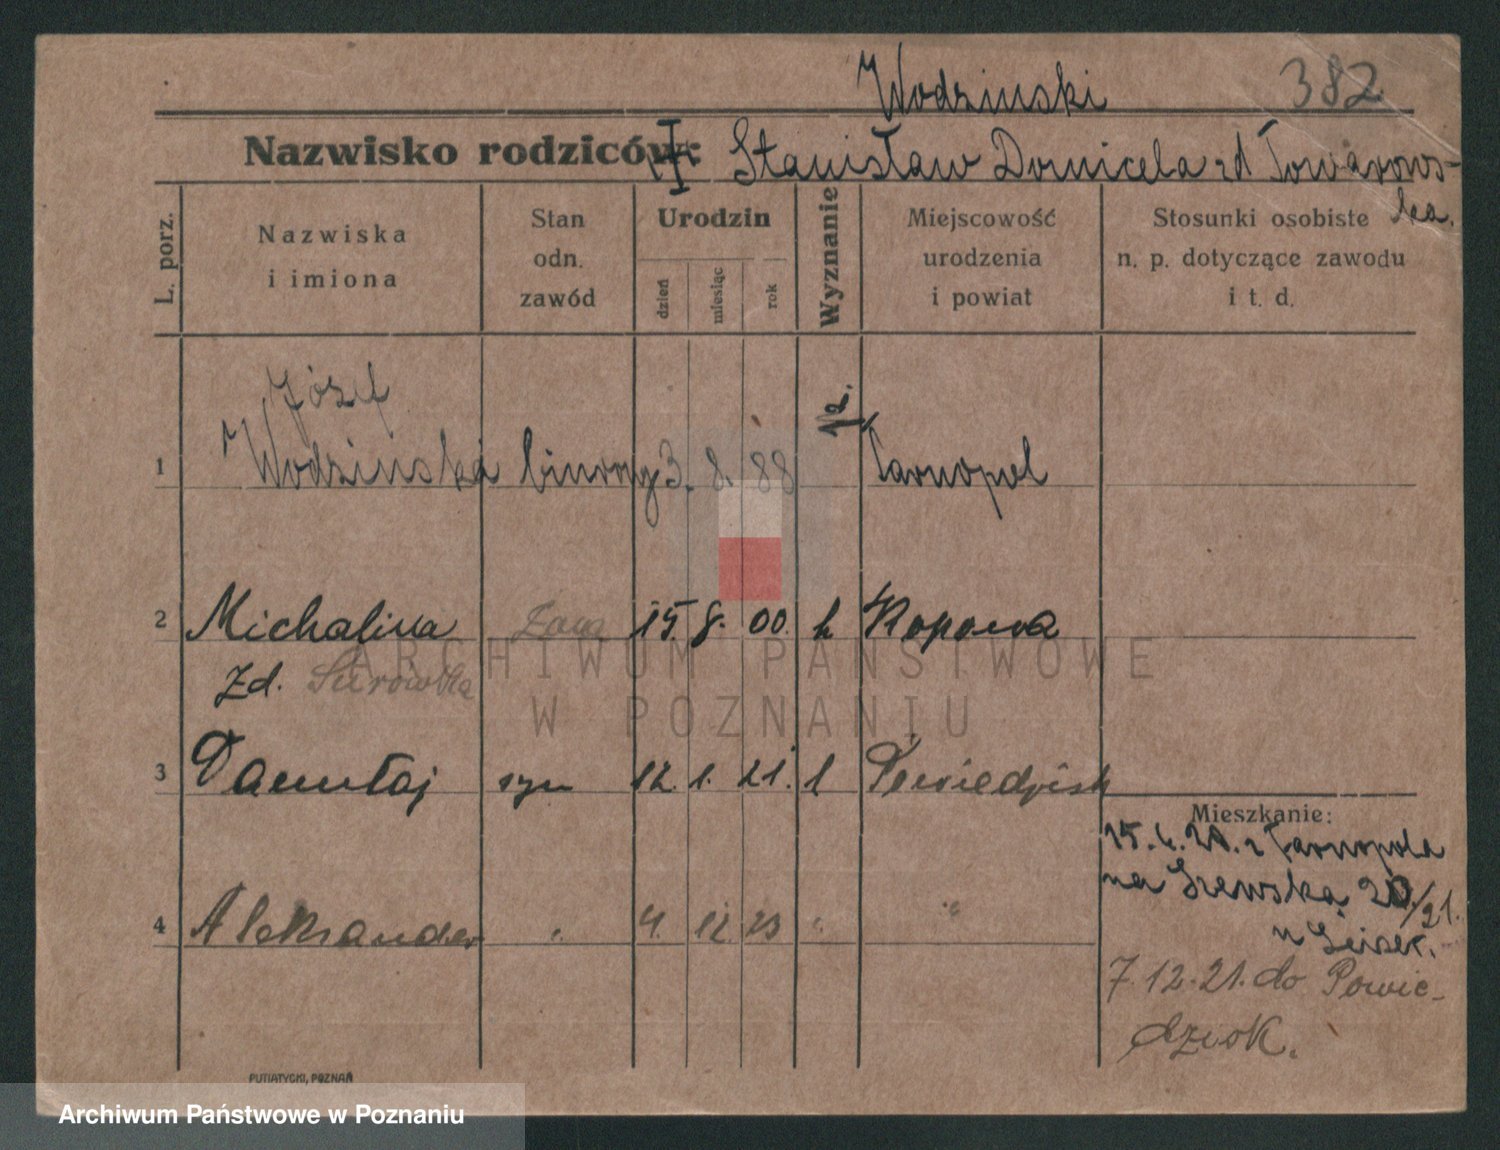 Wodzinski 382
Nazwisko rodziców: Stanisław Domicela zd Towarows-
ka.
L. porz.
Nazwiska
i imiona
Stan
odn.
zawód
Urodzin
dzień
miesiąc
rok
Wyznanie
Miejscowość
urodzenia
i powiat
Stosunki osobiste
n. p. dotyczące zawodu
i t. d.
Józef
1 Wodziński 3. 8. 88 Tarnopol
2 Michalina żona 15. 8. 00. k Kopowa
zd. Surówka
3 syn 12. 1. 21.
4 Aleksander " 4. 12 23 " "
Mieszkanie:
z Tarnopola
na Szewską 20/21.
7.12.21. do Powie-
dzisk.
PUTIATYCKI, POZNAŃ
ARCHIWUM PAŃSTWOWE
W POZNANIU
Archiwum Państwowe w Poznaniu